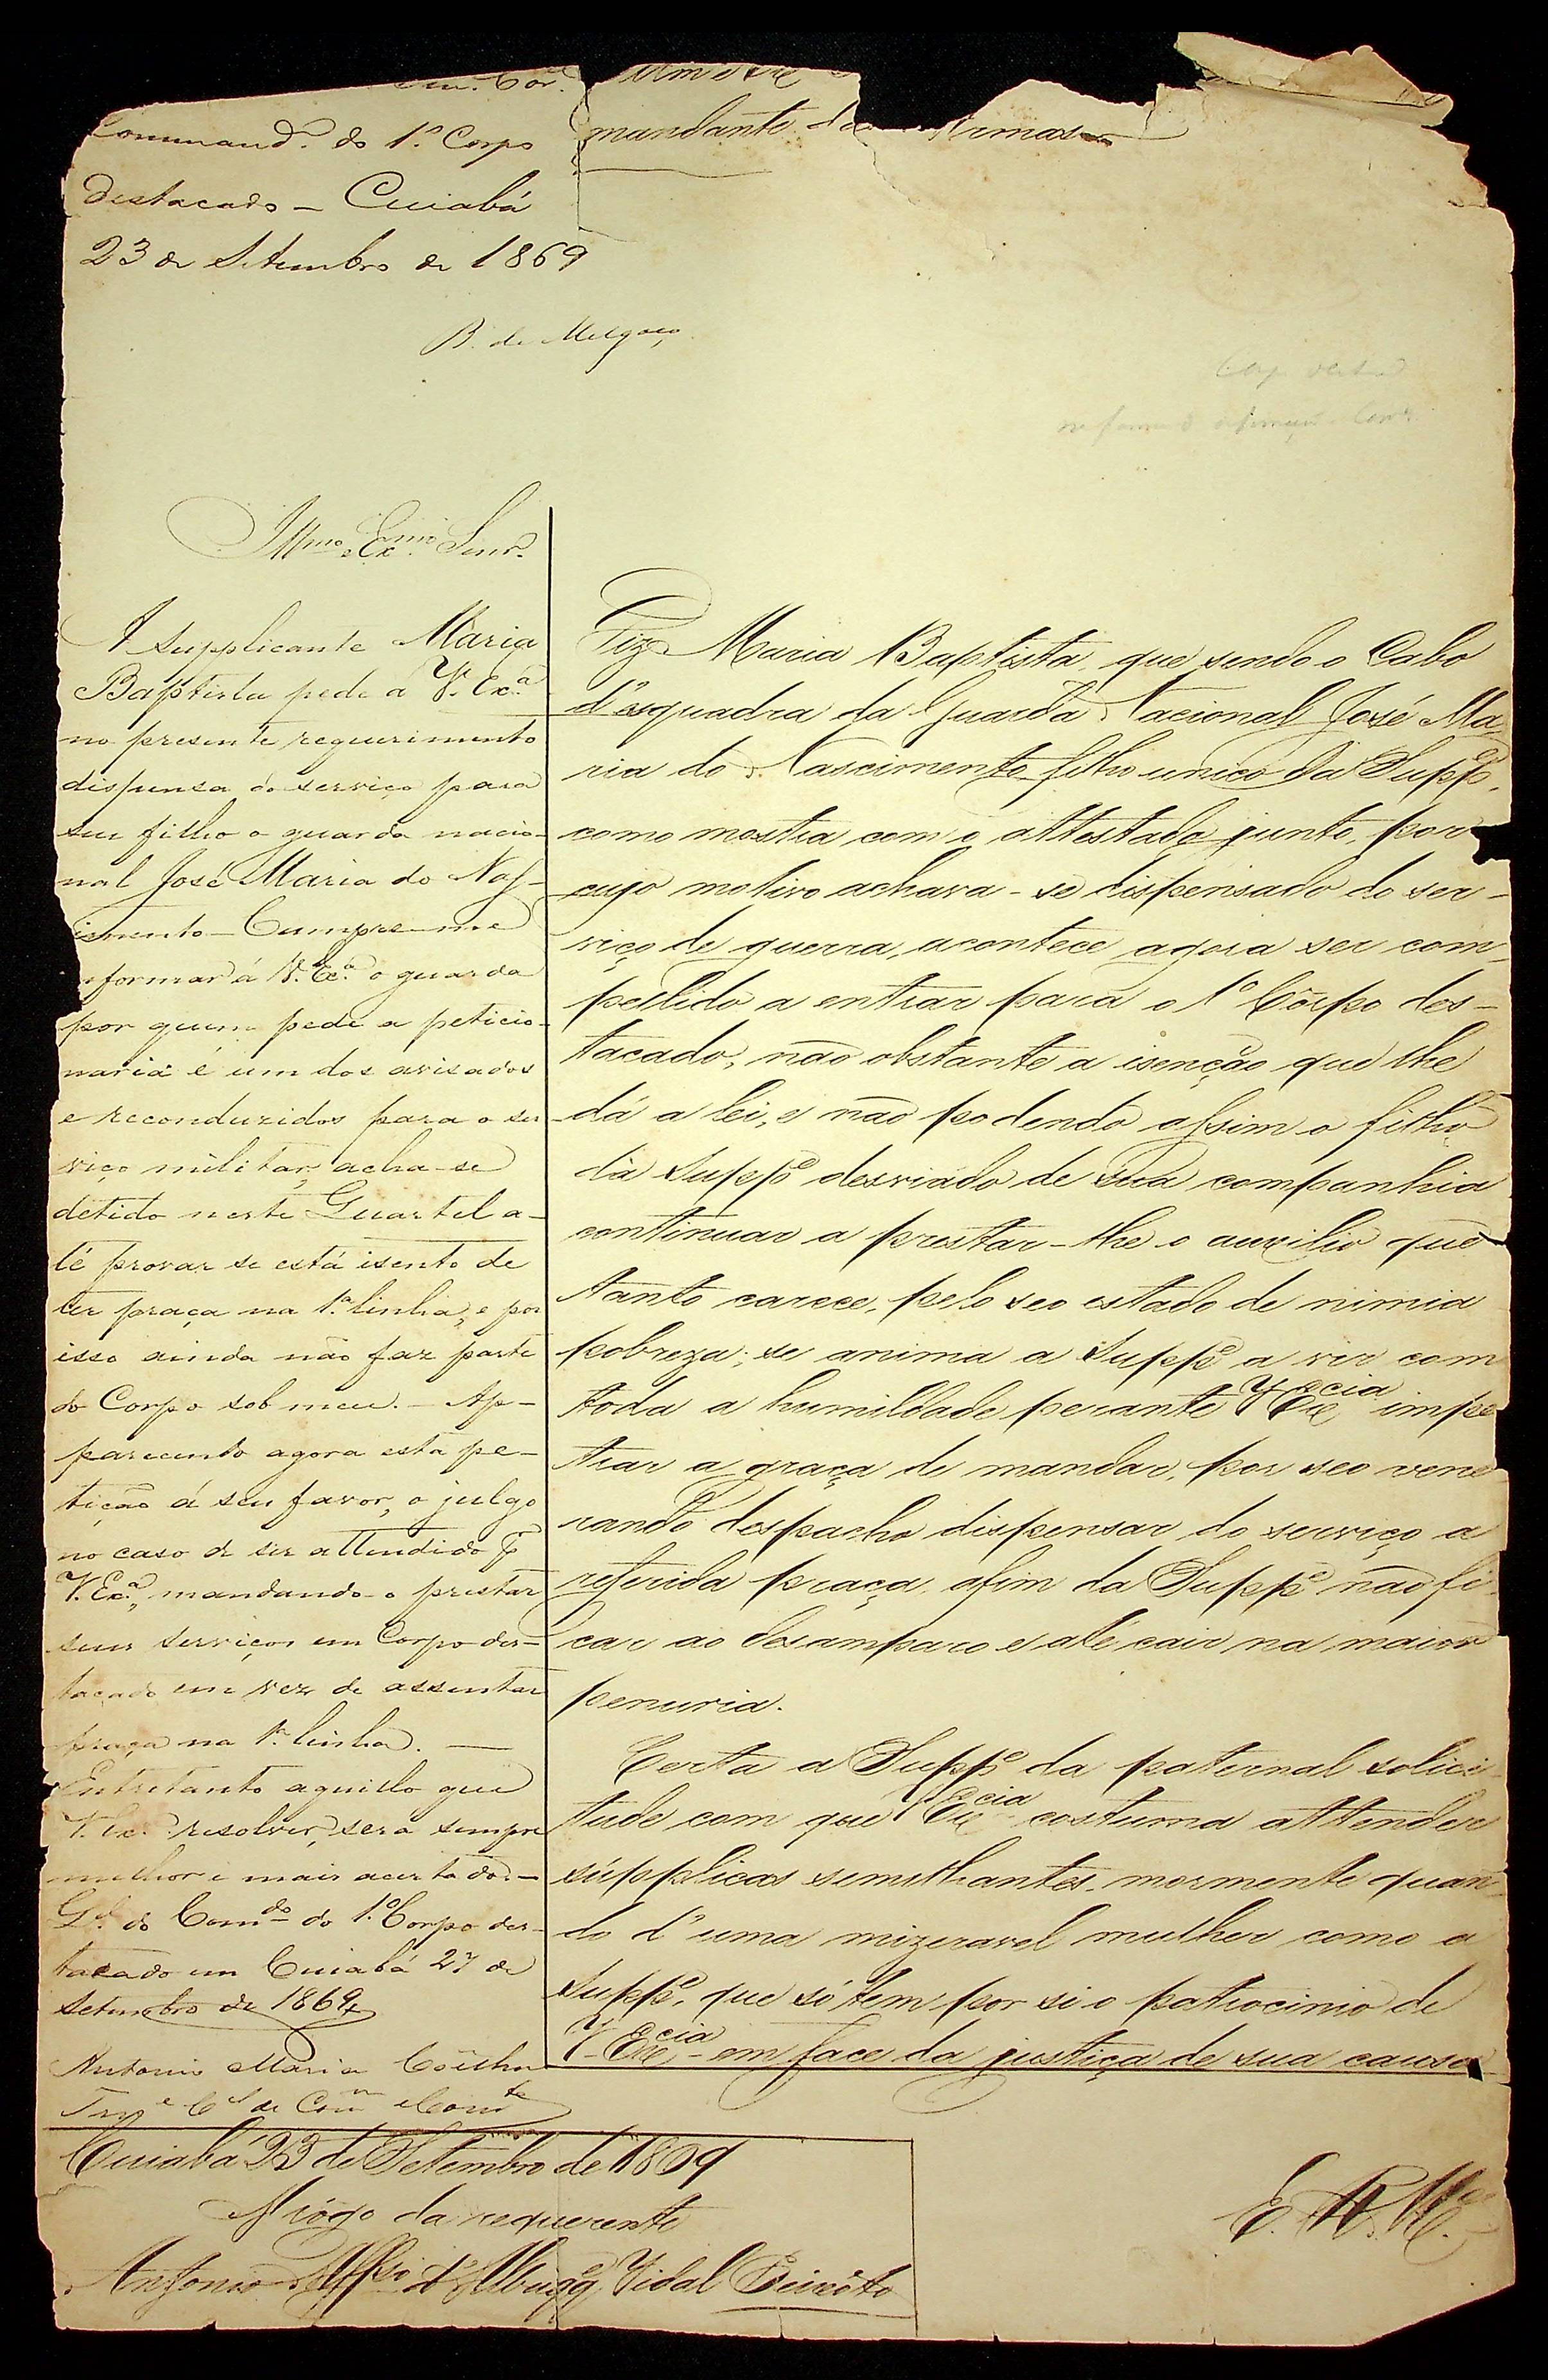 Command.e do 1.º Corpo
destacado - Cuiabá
23 de Setembro de 1869
B. de Melgaço
mandante das Armas
Illmo. e Exmo. Senr.
A supplicante Maria
Baptista pede a V. Ex.ª
no presente requerimento
dispensa do serviço para
seu filho o guarda nacio-
nal José Maria do Nas-
cimento - Cumpre-me
informar á V. Ex.ª o guarda
por quem pede a peticio-
naria é um dos avisados
e reconduzidos para o ser
viço militar, acha-se
detido neste Quartel a-
té provar se está isento de
ter praça na 1.ª linha, e por
isso ainda não faz parte
do Corpo sob meu. - Ap-
parecendo agora esta pe-
tição á seu favor, o julgo
no caso de ser attendido p
V. Ex.ª, mandando-o prestar
seus serviços em Corpo des-
tacado em vez de assentar
praça na 1.ª linha. -
Entretanto aquillo que
V. Ex.ª resolver, será sempre
melhor e mais acertado. -
Q.el do Com.do do 1.º Corpo des-
tacado em Cuiabá 27 de
Setembro de 1869
Antonio Maria Coêlho
Ten.e C.el de Com.m Com.te
Diz Maria Baptista que sendo o Cabo
d'esquadra da Guarda Nacional José Ma
ria do Nascimento filho unico da Supp.e,
como mostra com o attestado junto, por
cujo motivo achava-se dispensado do ser-
viço de guerra, acontece agora ser com
pellido a entrar para o 1º Côrpo des-
tacado, não obstante a isenção que lhe
dá a lei, e não podendo assim o filho
da Supp.e desviado de sua companhia
continuar a prestar-lhe o auxilio que
tanto carece, pelo seo estado de nimia
pobreza; se anima a Supp.e a vir com
toda a humildade perante V Ex.cia impe
trar a graça de mandar, por seo vene
rando despacho dispensar do serviço a
referida praça, afim da Supp.e não fi
car ao desamparo e até cair na maior
penuria.
Certa a Supp.e da paternal solici
tude com que V Ex.cia costuma attender
súpplicas semilhantes, mormente quan-
do d'uma mizeravel mulher como a
Supp.e, que só tem por si o patrocinio de
V. Ex.cia - em face da justiça de sua causa
E. R. M.cê
Cuiabá 23 de Setembro de 1869
A rôgo da requerente
Antonio Aff.so d'Albuq.e Vidal Peixôto